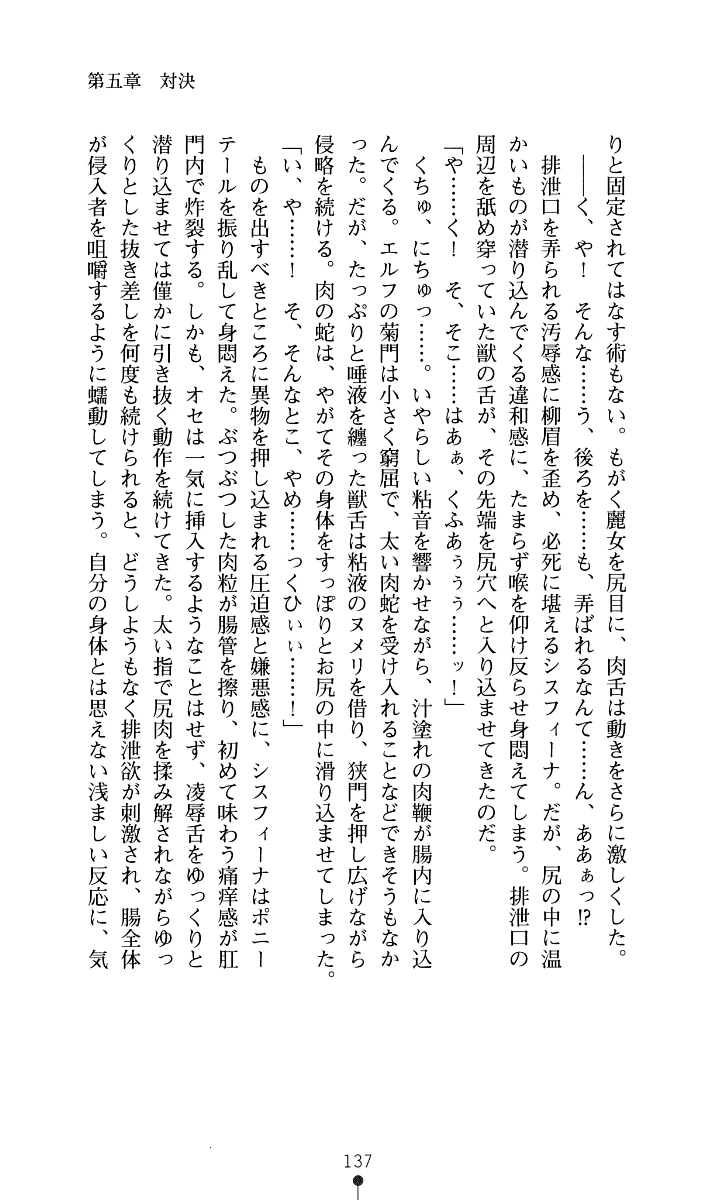 第五章　対決
りと固定されてはなす術もない。もがく麗女を尻目に、肉舌は動きをさらに激しくした。
　――く、や！　そんな……う、後ろを……も、弄ばれるなんて……ん、ああぁっ!?
　排泄口を弄られる汚辱感に柳眉を歪め、必死に堪えるシスフィーナ。だが、尻の中に温
かいものが潜り込んでくる違和感に、たまらず喉を仰け反らせ身悶えてしまう。排泄口の
周辺を舐め穿っていた獣の舌が、その先端を尻穴へと入り込ませてきたのだ。
「や……く！　そ、そこ……はあぁ、くふあぅぅぅ……ッ！」
　くちゅ、にちゅっ……。いやらしい粘音を響かせながら、汁塗れの肉鞭が腸内に入り込
んでくる。エルフの菊門は小さく窮屈で、太い肉蛇を受け入れることなどできそうもなか
った。だが、たっぷりと唾液を纏った獣舌は粘液のヌメリを借り、狭門を押し広げながら
侵略を続ける。肉の蛇は、やがてその身体をすっぽりとお尻の中に滑り込ませてしまった。
「い、や……！　そ、そんなとこ、やめ……っくひぃぃ……！」
　ものを出すべきところに異物を押し込まれる圧迫感と嫌悪感に、シスフィーナはポニー
テールを振り乱して身悶えた。ぶつぶつした肉粒が腸管を擦り、初めて味わう痛痒感が肛
門内で炸裂する。しかも、オセは一気に挿入するようなことはせず、凌辱舌をゆっくりと
潜り込ませては僅かに引き抜く動作を続けてきた。太い指で尻肉を揉み解されながらゆっ
くりとした抜き差しを何度も続けられると、どうしようもなく排泄欲が刺激され、腸全体
が侵入者を咀嚼するように蠕動してしまう。自分の身体とは思えない浅ましい反応に、気
137